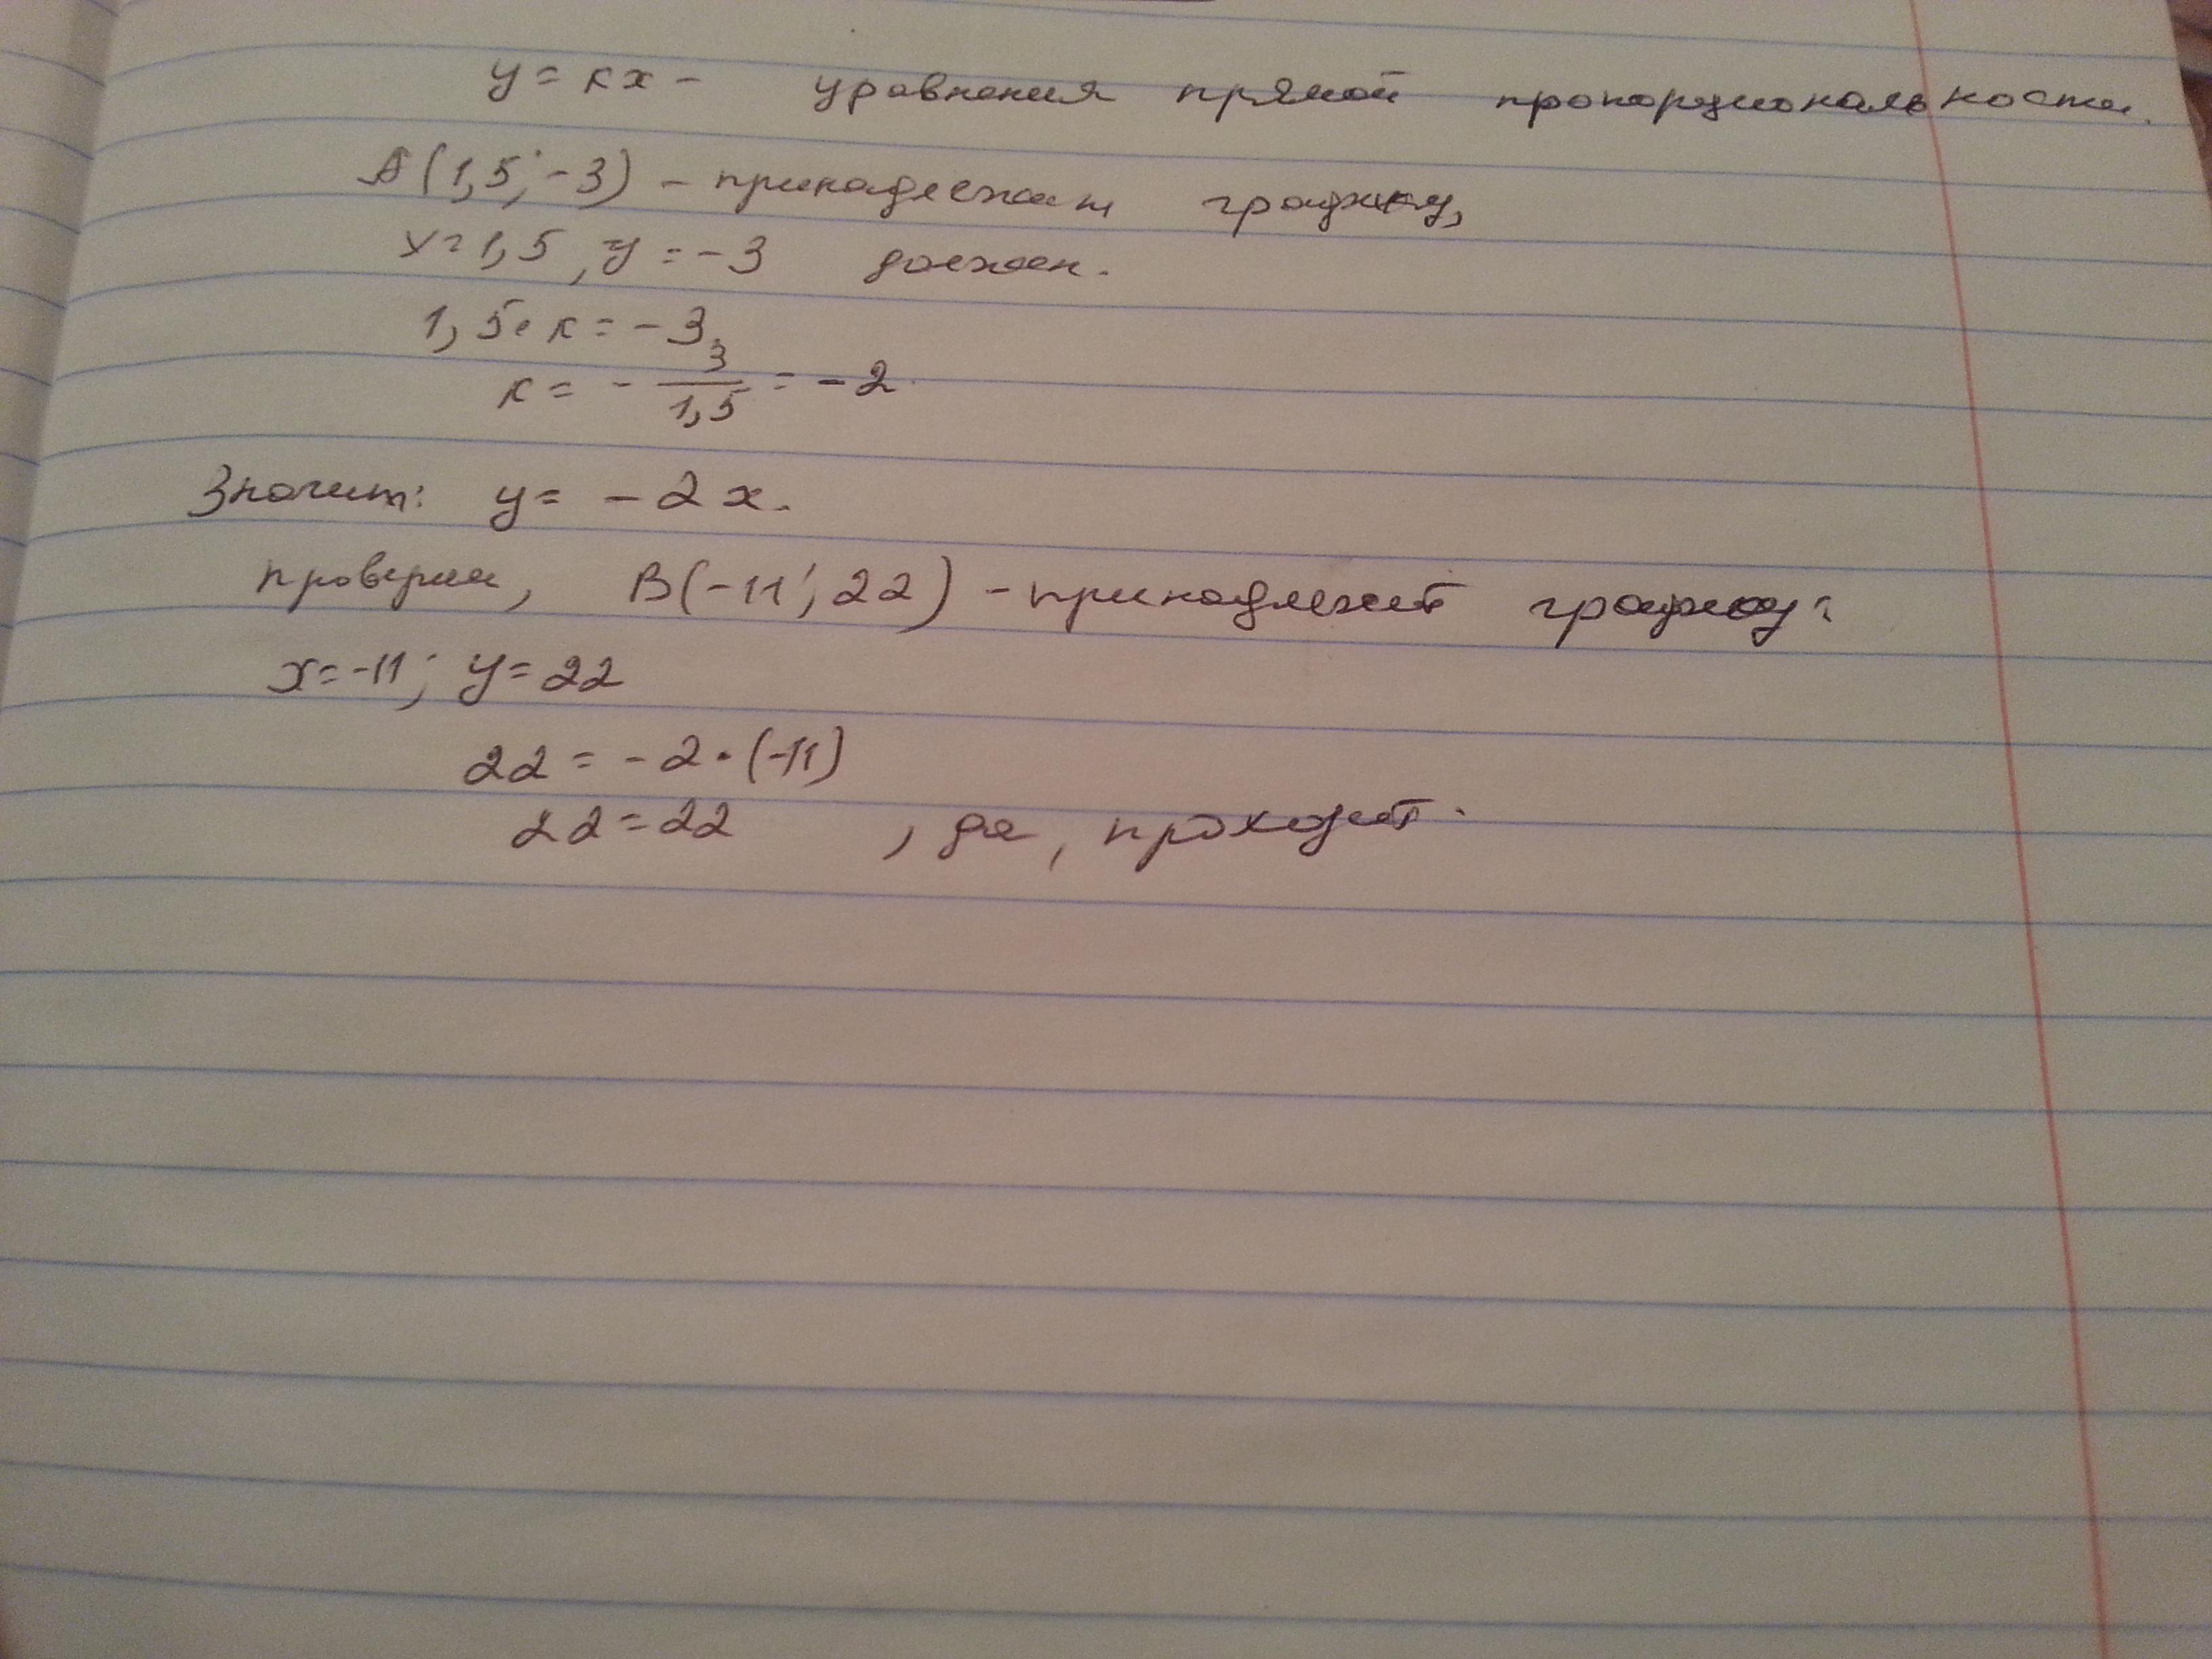 y = kx - уравнения прямой пропорциональности.
A(1,5; -3) - принадлежит графику,
x = 1,5, y = -3 должен.
1,5 • k = -3,
k = - 3/1,5 = -2.
Значит: y = -2x.
проверим, B(-11; 22) - принадлежит графику:
x = -11; y = 22
22 = -2 • (-11)
22 = 22 , да, проходит.